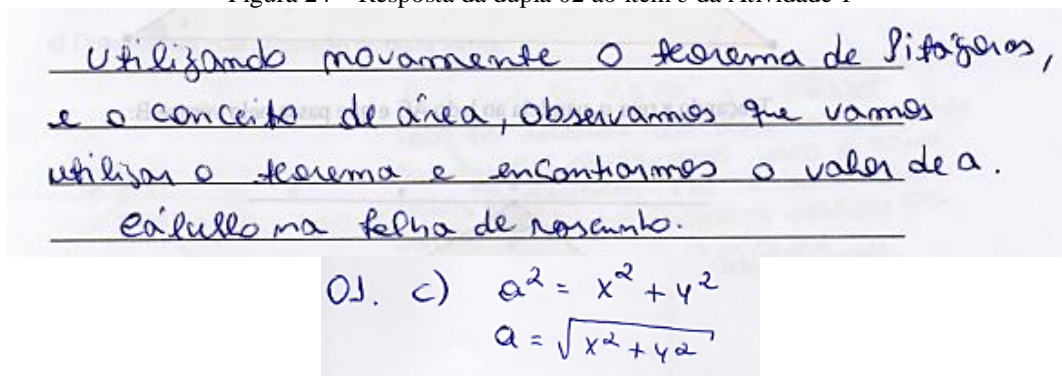 Figura 24 – Resposta da dupla 02 ao item c da Atividade 1
Utilizando novamente o teorema de Pitágoras,
e o conceito de área, observamos que vamos
utilizar o teorema e encontrarmos o valor de a.
Cálculo na folha de rascunho.
01. c) a² = x² + y²
a = √x² + y²